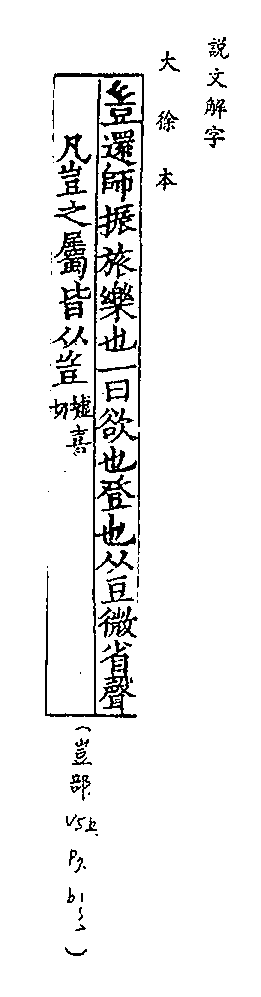 說文解字
大徐本
豈還師振旅樂也一曰欲也登也从豆微省聲
凡豈之屬皆从豈墟喜切
(豈部 V5上 P7. b1~2)